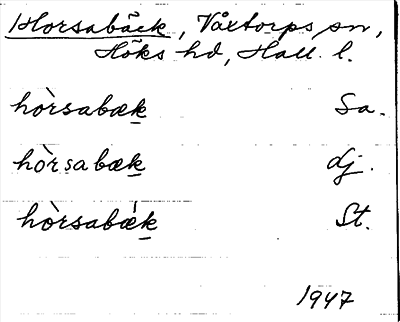 Horsabäck, Växtorps sn,
Höks hd, Hall. l.
hòrsabæk Sa.
hòrsabæk dj.
hòrsabǽk St.
1947